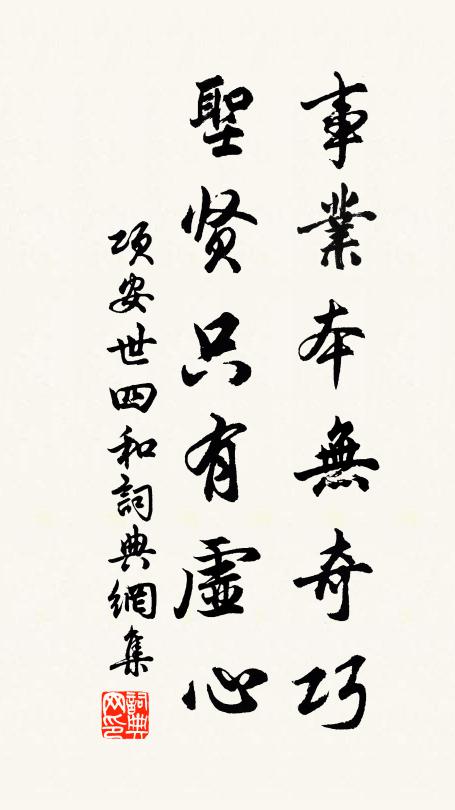 事業本無奇巧
聖贤只有虛心
項安世四和詞典網集
詞典网印